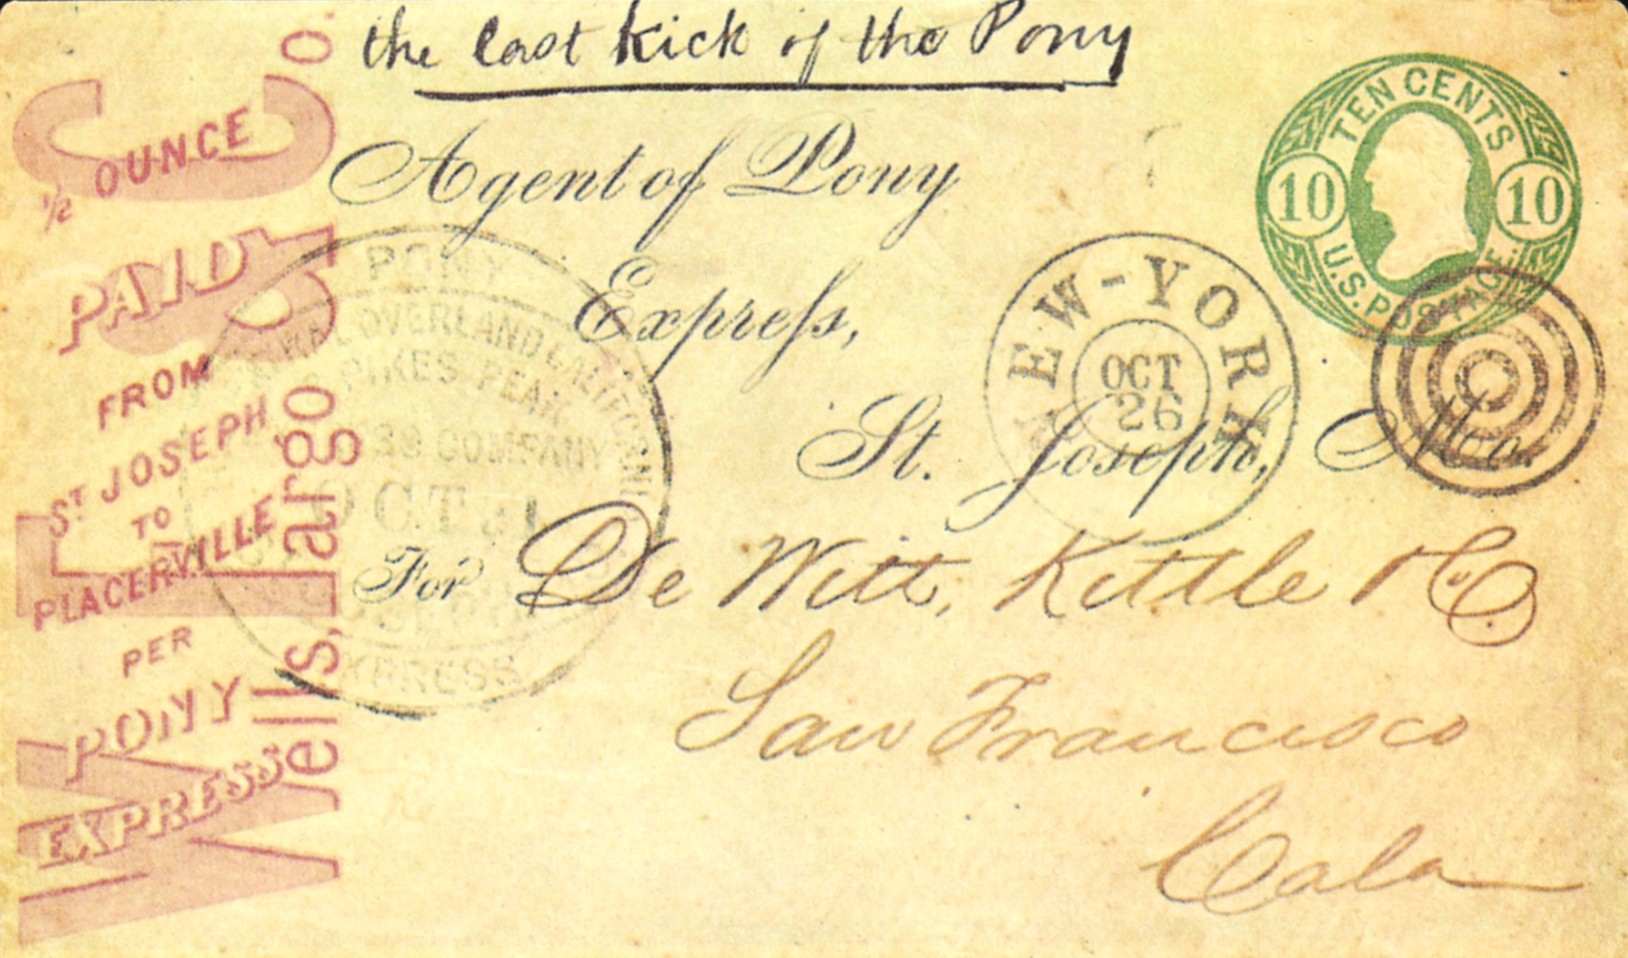 the last kick of the Pony
Agent of Pony
Express,
St. Joseph, Mo.
For De Witt, Kittle & Co.
San Francisco
Cala
TEN CENTS
10 10
U.S. POSTAGE
NEW-YORK
OCT
26
PONY
OVERLAND CALIFORNIA
PIKES PEAK
COMPANY
OCT 31
EXPRESS
Wells, Fargo & Co.
1/2 OUNCE
PAID
FROM
ST JOSEPH
TO
PLACERVILLE
PER
PONY
EXPRESS